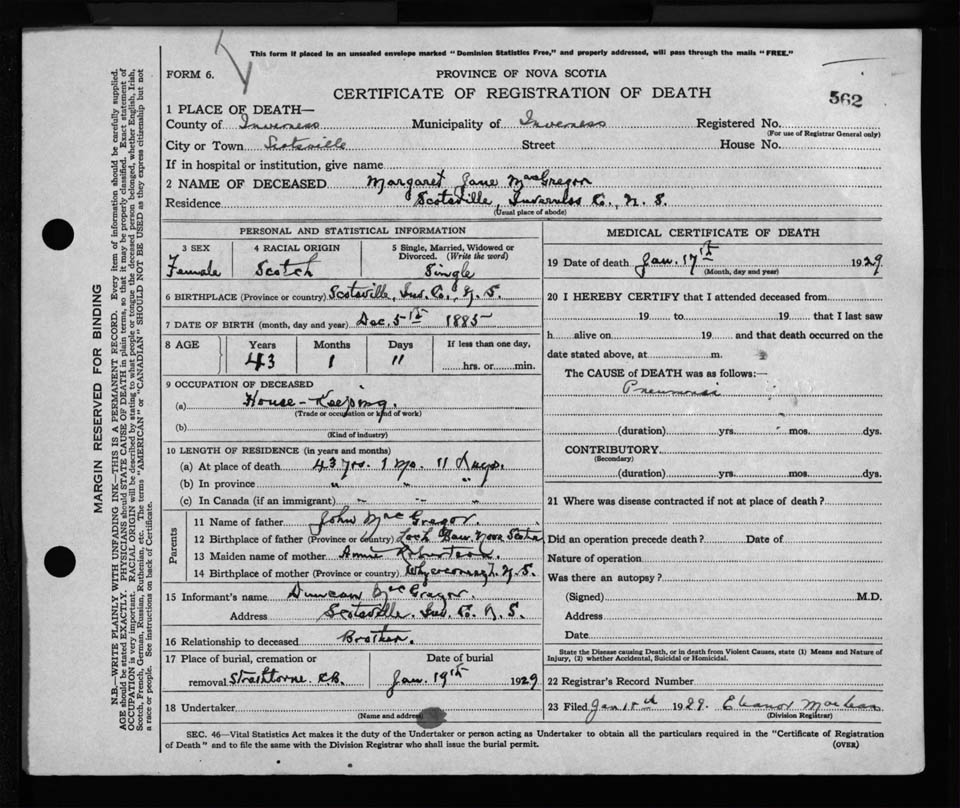 This form if placed in an unsealed envelope marked "Dominion Statistics Free," and properly addressed, will pass through the mails "FREE."
FORM 6. PROVINCE OF NOVA SCOTIA
CERTIFICATE OF REGISTRATION OF DEATH 562
1 PLACE OF DEATH—
County of Inverness Municipality of Inverness Registered No.
(For use of Registrar General only)
City or Town Scotsville Street House No.
If in hospital or institution, give name
2 NAME OF DECEASED Margaret Jane MacGregor
Residence Scotsville, Inverness Co., N. S.
(Usual place of abode)
PERSONAL AND STATISTICAL INFORMATION
3 SEX 4 RACIAL ORIGIN 5 Single, Married, Widowed or Divorced. (Write the word)
Female Scotch Single
6 BIRTHPLACE (Province or country) Scotsville, Inv. Co., N. S.
7 DATE OF BIRTH (month, day and year) Dec. 5th 1885
8 AGE Years Months Days If less than one day,
43 1 11 hrs. or min.
9 OCCUPATION OF DECEASED
(a) House-Keeping.
(Trade or occupation or kind of work)
(b)
(Kind of industry)
10 LENGTH OF RESIDENCE (in years and months)
(a) At place of death 43 yrs. 1 mo. 11 Days.
(b) In province " " "
(c) In Canada (if an immigrant) - - -
Parents
11 Name of father John MacGregor.
12 Birthplace of father (Province or country) Loch Ban, Nova Scotia
13 Maiden name of mother Annie Robertson.
14 Birthplace of mother (Province or country) Whycocomagh, N. S.
15 Informant's name Duncan MacGregor.
Address Scotsville, Inv. Co. N. S.
16 Relationship to deceased Brother.
17 Place of burial, cremation or removal Strathlorne, C.B. Date of burial Jan. 19th 1929
18 Undertaker
(Name and address)
MEDICAL CERTIFICATE OF DEATH
19 Date of death Jan. 17th 1929
(Month, day and year)
20 I HEREBY CERTIFY that I attended deceased from
19 to 19 that I last saw
h alive on 19 and that death occurred on the
date stated above, at m.
The CAUSE of DEATH was as follows:—
Pneumonia
(duration) yrs. mos. dys.
CONTRIBUTORY
(Secondary)
(duration) yrs. mos. dys.
21 Where was disease contracted if not at place of death?
Did an operation precede death? Date of
Nature of operation
Was there an autopsy?
(Signed) M.D.
Address
Date
State the Disease causing Death, or in death from Violent Causes, state (1) Means and Nature of
Injury, (2) whether Accidental, Suicidal or Homicidal.
22 Registrar's Record Number
23 Filed Jan 18th 1929. Eleanor MacLean
(Division Registrar)
SEC. 46—Vital Statistics Act makes it the duty of the Undertaker or person acting as Undertaker to obtain all the particulars required in the "Certificate of Registration
of Death" and to file the same with the Division Registrar who shall issue the burial permit. (OVER)
MARGIN RESERVED FOR BINDING
N.B.—WRITE PLAINLY WITH UNFADING INK—THIS IS A PERMANENT RECORD. Every item of information should be carefully supplied.
AGE should be stated EXACTLY. PHYSICIANS should STATE CAUSE OF DEATH in plain terms, so that it may be properly classified. Exact statement of
OCCUPATION is very important. RACIAL ORIGIN will be described by stating to what people or tongue the deceased person belonged, whether English, Irish,
Scotch, French, German, Russian, Ruthenian, etc. The terms "AMERICAN" or "CANADIAN" SHOULD NOT BE USED as they express citizenship but not
a race or people. See instructions on back of Certificate.